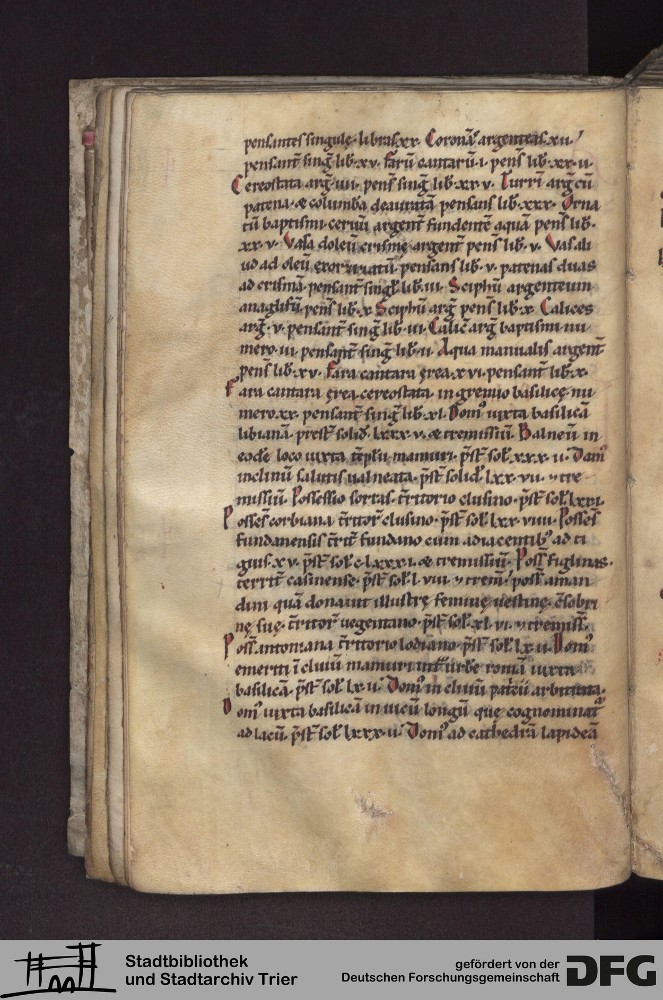 pensantes singulę· libras xx· Coronā argenteas xii·
pensant̄ sinḡ lib· xv· farū cantarū· i· pens̄ lib· xx· ii·
Cereostata arḡ iiii· pens̄ sinḡ lib· xx v· Turrī arḡ cū
patena· & columba deauratā pensans lib· xxx· Orna
tū baptismi· ceruū argent̄ fundentē aquā· pens̄ lib·
xx· v· Vasa doleū crismę argent̄ pens̄ lib· v· Vas ali
ud ad oleū exorzizatū pensans lib· v· patenas duas
ad crismā· pensant̄ sinḡ lib· iii· Sciphū argenteum
anaglifū pens̄ lib· x· Sciphū arḡ pens̄ lib· x· Calices
arḡ· v· pensant̄ sinḡ lib· iii· Calic̄ arḡ baptismi· nu
mero· iii· pensant̄ sinḡ lib· ii· Aqua manualis argent̄
pens̄ lib· xv· Fara cantara ęrea· x vi· pensant̄ lib· x·
Fara cantara ęrea· cereostata in gremio basilicę· nu
mero xx· pensant̄ sinḡ lib· xl· Dom' iuxta basilicā
libianā· prest̄ solid̄· lxxx· v· & tremissiū· Balneū in
eodē loco iuxta tēplū mamuri· p̄st̄ sol̄· xxx· ii· Dom'
in cliuū salutis ualneata· p̄st̄ solid̄ lxx· vii· 7 tre
missiū· Possessio sortas· t̄ritorio clusino· p̄st̄ sol̄ lxxi·
Posses̄ corbiana· t̄ritor̄ clusino· p̄st̄ sol̄ lxx· viiii· Posses̄
fundanensis t̄rit̄ fundano cum adiacentib' ad ti
guis· x v· p̄st̄ sol̄· c· lxxx i· & tremissiū· Poss̄ figlinas·
territ̄ casinense· p̄st̄ sol̄· l· viii· 7 trem̄· poss̄ aman
dini quā donauit illustrę feminę uestinę· c̄sobri
nę suę· t̄ritor̄ uegentano· p̄st̄ sol̄· xl· vi· 7 tremiss̄·
Poss̄ antoniana t̄ritorio lodiano· p̄st̄ sol̄· lx· ii· Dom'
emeriti ī cliuū mamuri infr̄ urbē romā iuxta
basilicā· p̄st̄ sol̄ lx· ii· Dom' in cliuū patēti arbitrata·
Dom' iuxta basilicā in uicū longū quę cognominat᷑
ad lacū· p̄st̄ sol̄ lxxx· ii· Dom' ad cathedrā lapideā
Stadtbibliothek
und Stadtarchiv Trier
gefördert von der
Deutschen Forschungsgemeinschaft
DFG